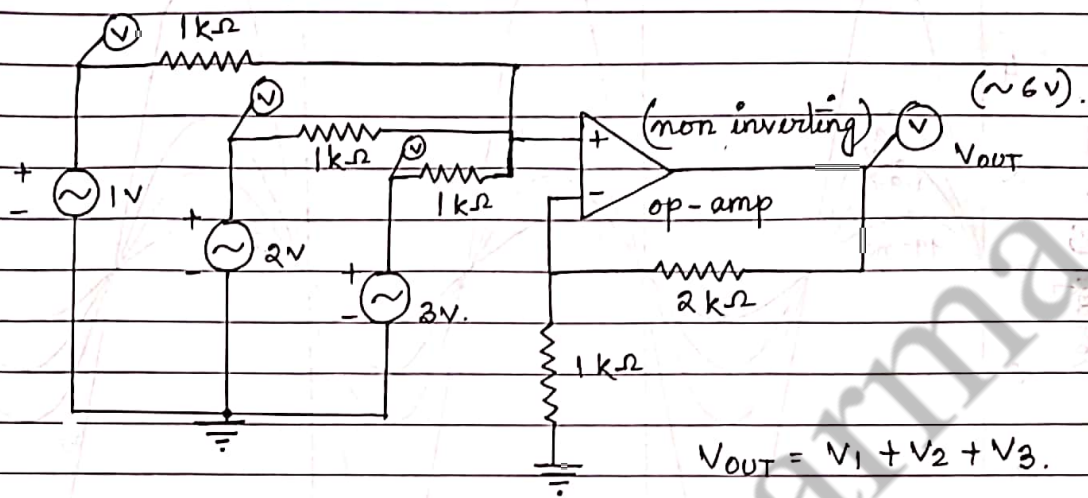 V
1 kΩ
V
1 kΩ
V
1 kΩ
+
-
1V
+
-
2V
+
-
3V.
+
-
(non inverting)
op-amp
(~6V).
V
VOUT
2 kΩ
1 kΩ
VOUT = V1 + V2 + V3.
arma